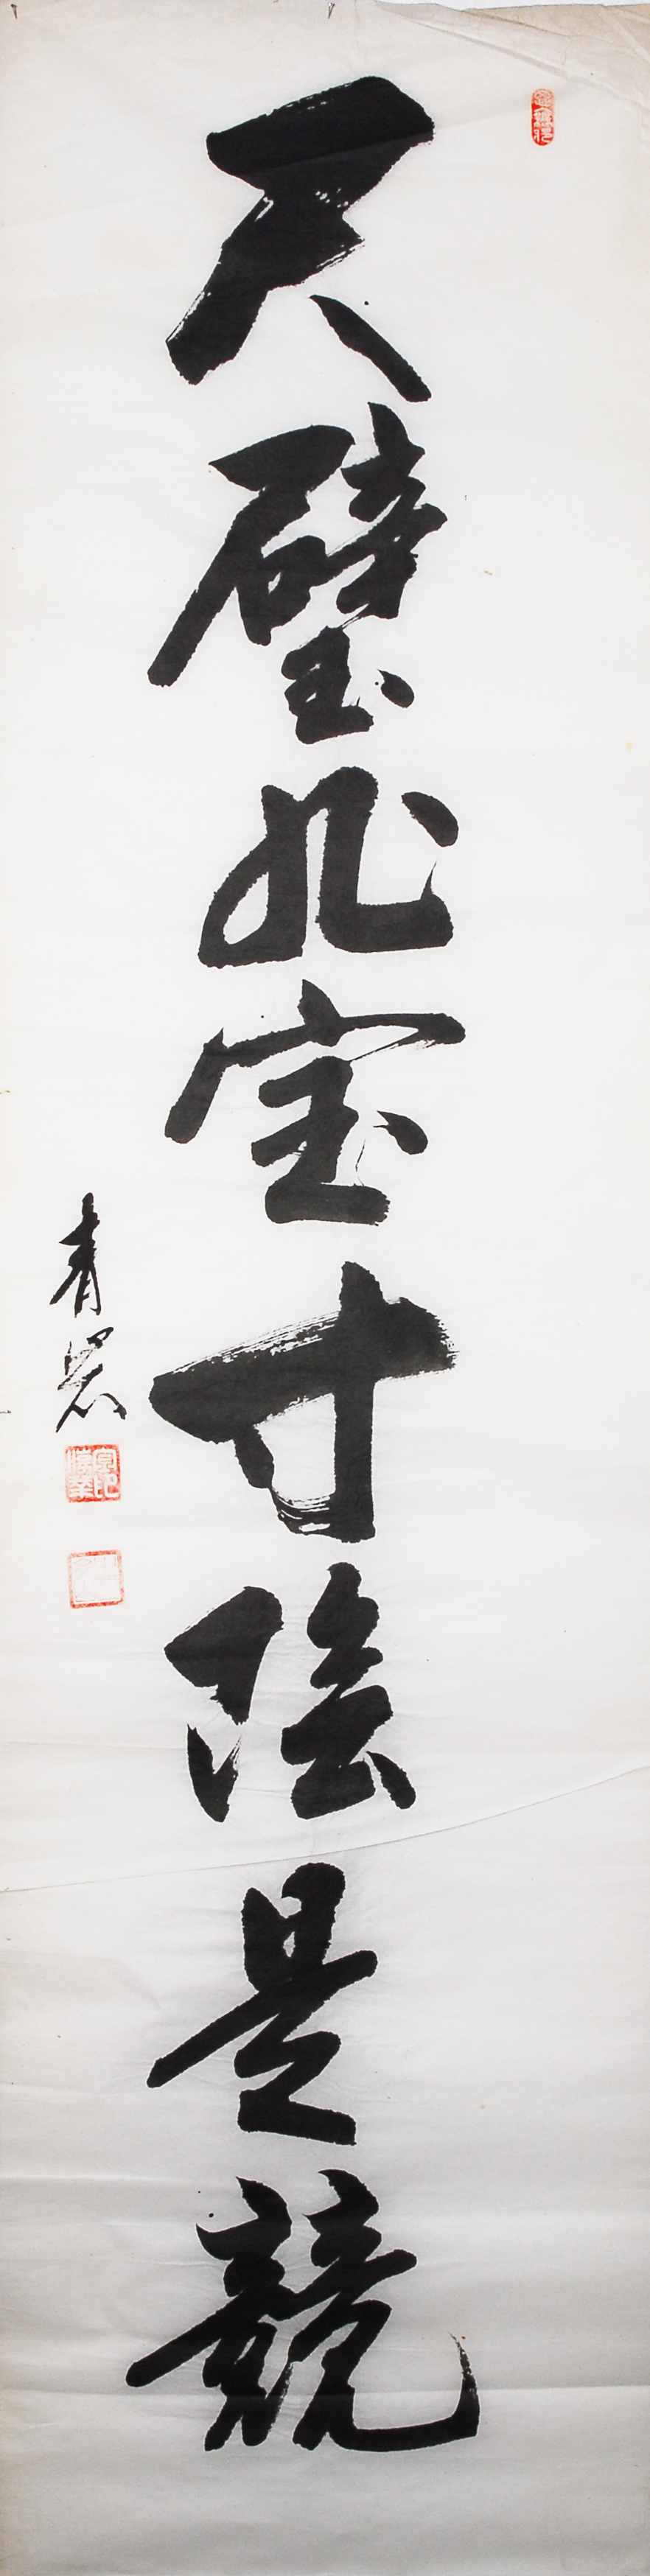 尺璧非宝寸陰是競